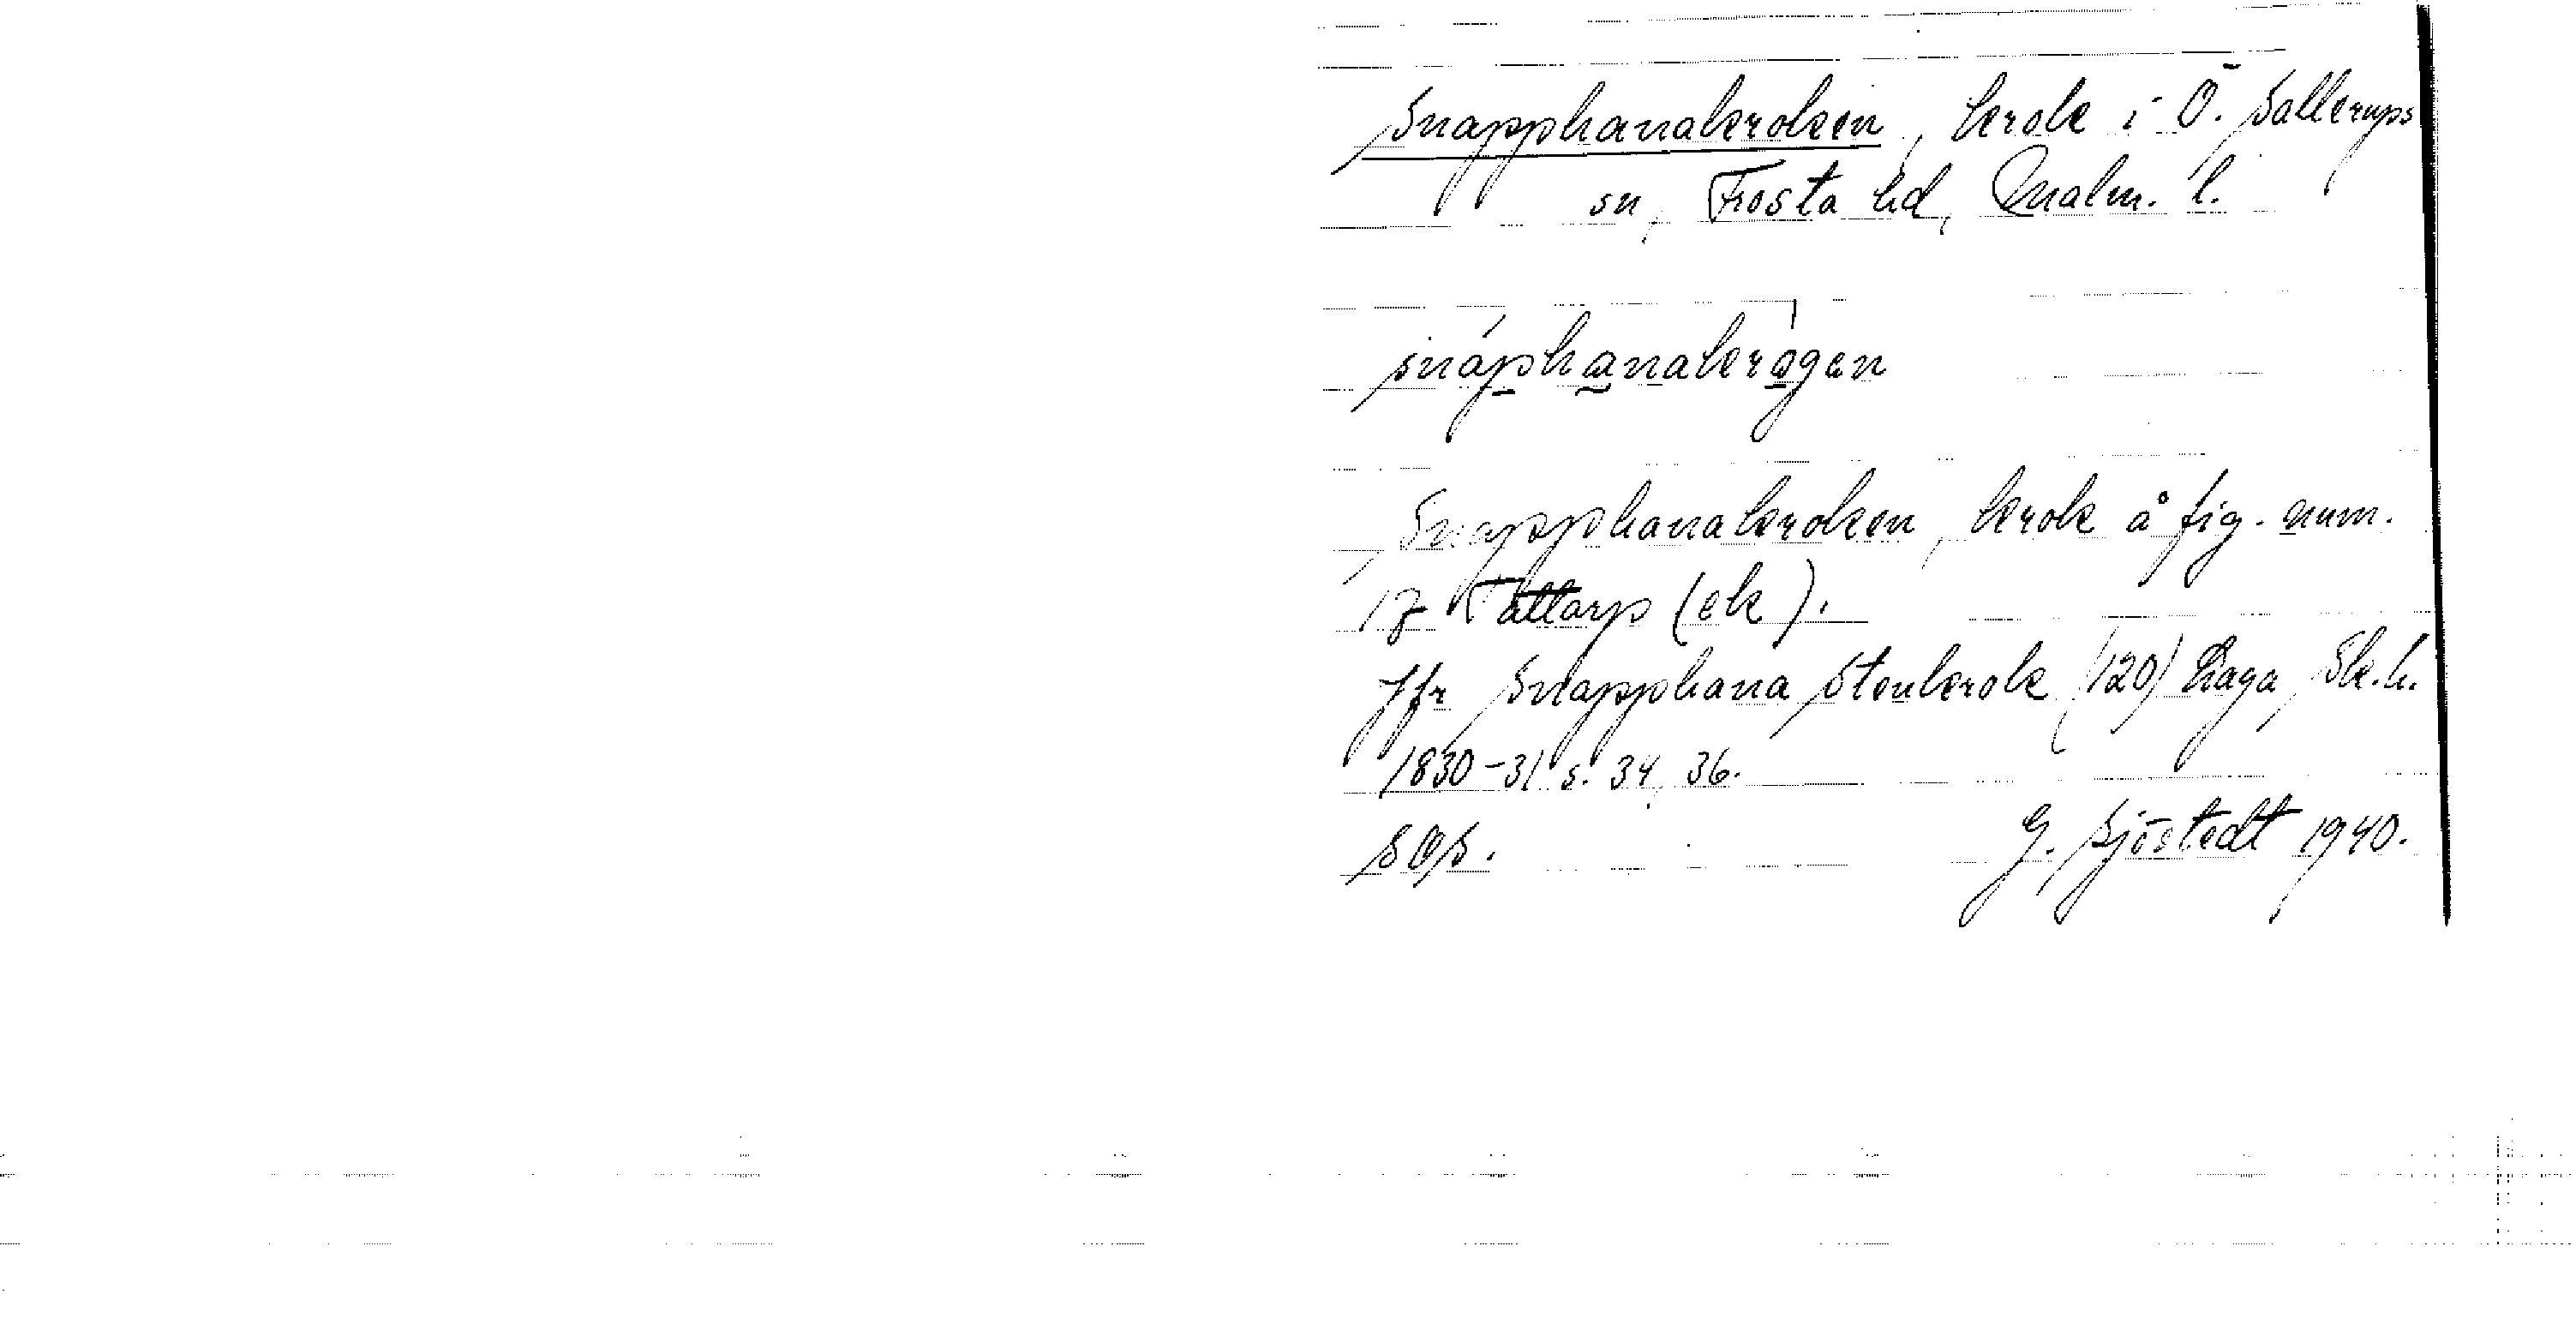 Snapphanakroken, krok i Ö. Sallerups
sn, Frosta hd, Malm. l.
snáphanakrogen
Snapphanakroken, krok å fig. num.
17 Tattarp (ek).
Jfr Snapphana Stenkrok (120) Laga Sk. h.
1830-31 s. 34, 36.
SOS. G. Sjöstedt 1940.